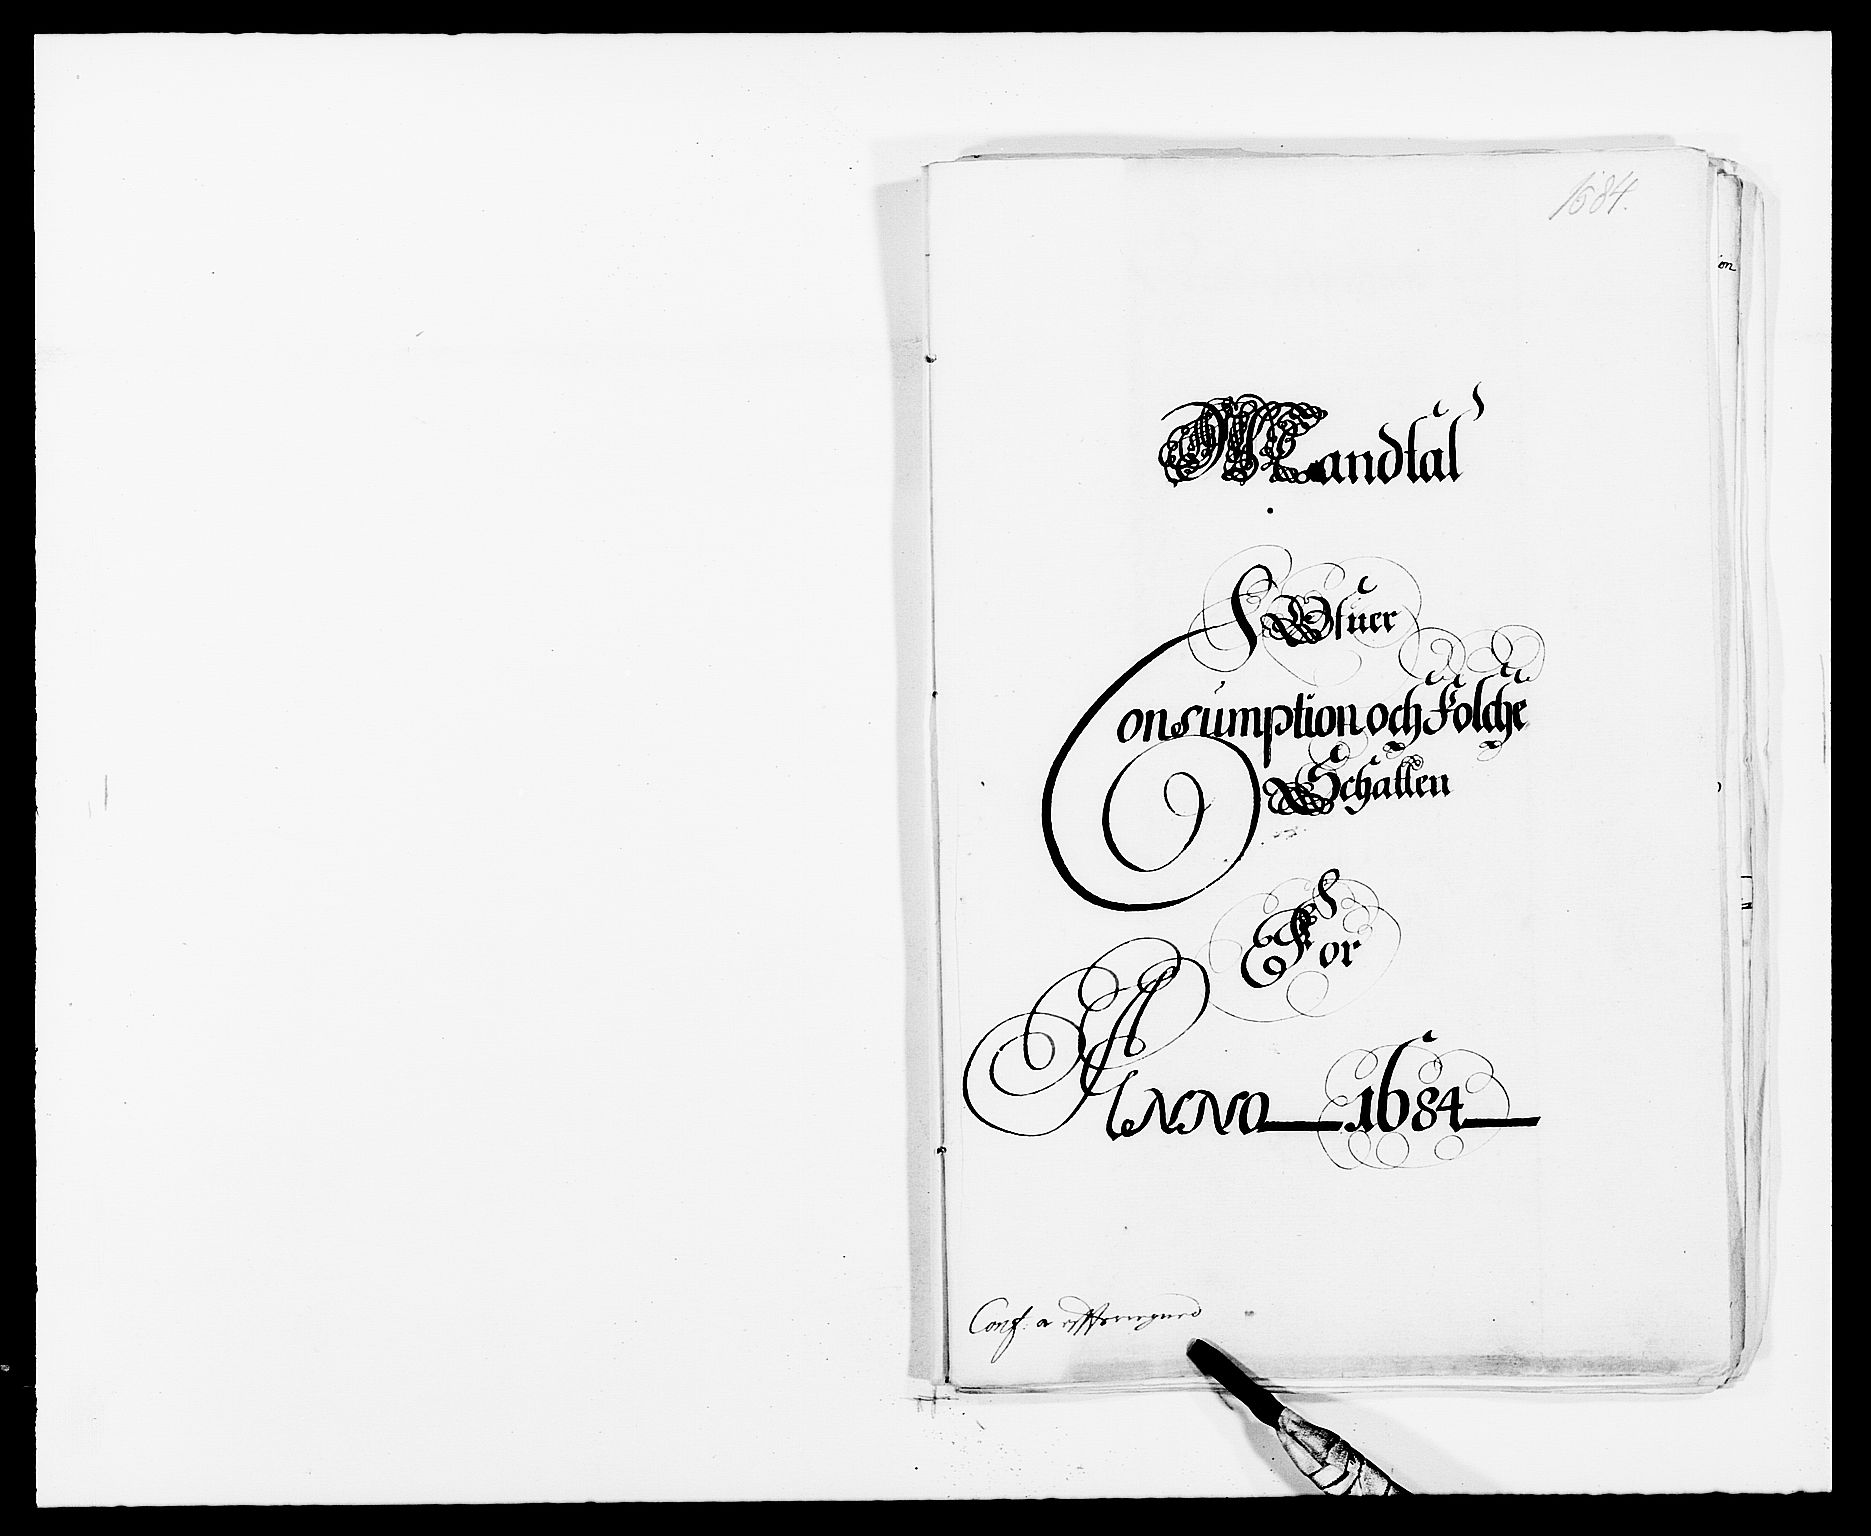 1684.
Mandtal
Ofuer
Consumption och Folche
Schatten
For
Anno 1684
Conf: a